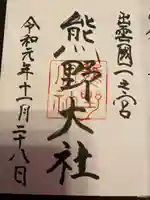 出雲國一之宮
熊野大社
令和元年十一月二十八日